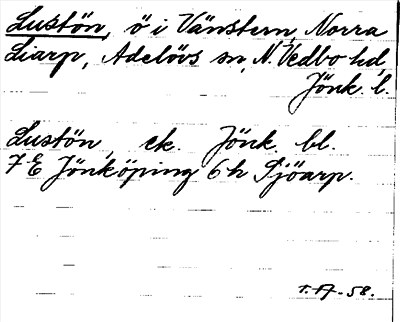 Lustön, ö i Vänstern, Norra
Liarp, Adelövs sn, N. Vedbo hd,
Jönk. l.
Lustön, ek. Jönk. bl.
7E Jönköping 6h Sjöarp.
58.